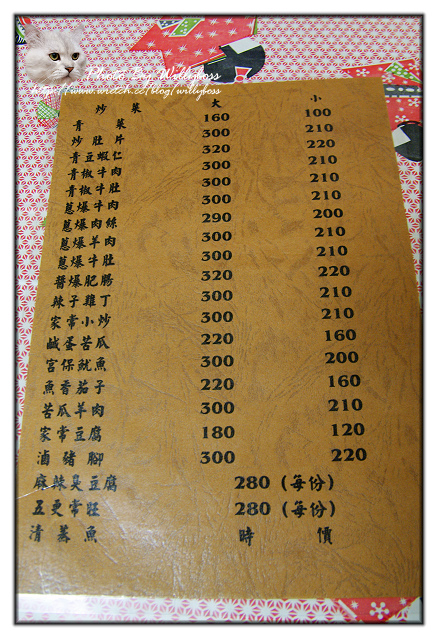 Photo By Willyboss
http://www.wretch.cc/blog/willyboss
炒菜 大 小
青菜 160 100
炒肚片 300 210
青豆蝦仁 320 220
青椒牛肉 300 210
青椒牛肚 300 210
蔥爆牛肉 300 210
蔥爆肉絲 290 200
蔥爆羊肉 300 210
蔥爆牛肚 300 210
醬爆肥腸 320 220
辣子雞丁 300 210
家常小炒 300 210
鹹蛋苦瓜 220 160
宮保就魚 300 200
魚香茄子 220 160
苦瓜羊肉 300 210
家常豆腐 180 120
滷豬腳 300 220
麻辣臭豆腐 280 (每份)
五更常旺 280 (每份)
清蒸魚 時價